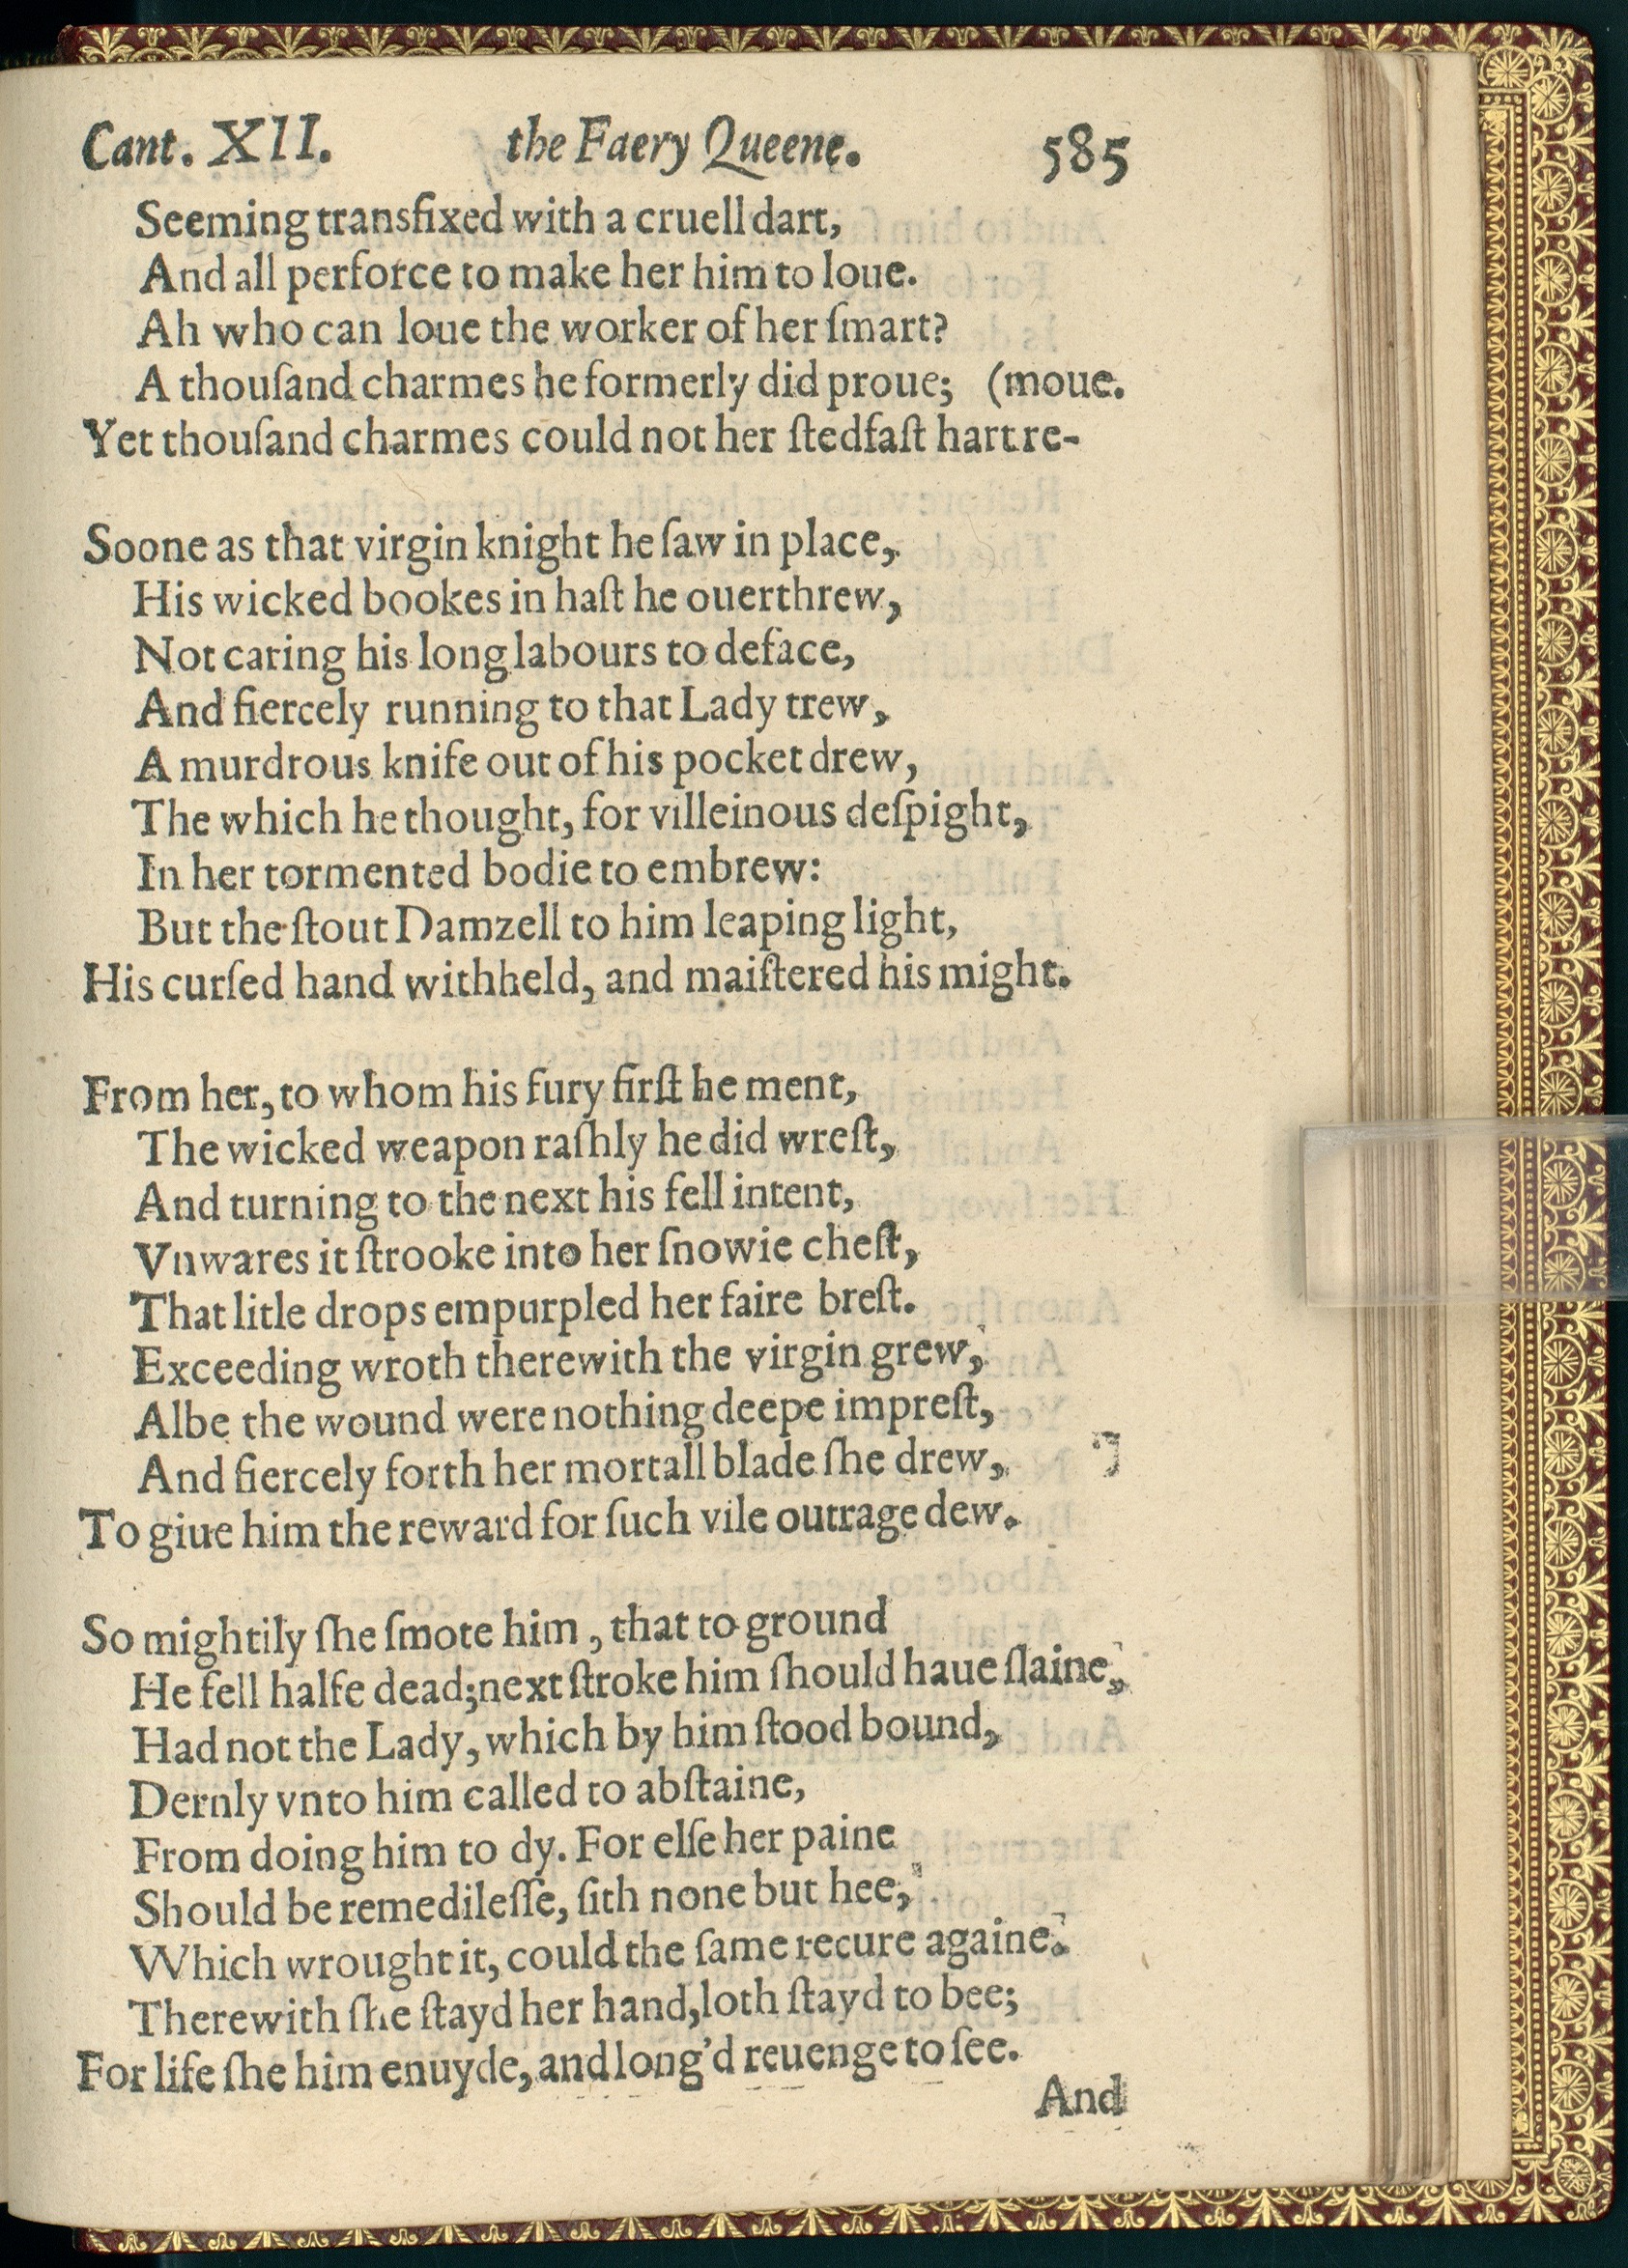 Cant. XII. the Faery Queene. 585
Seeming transfixed with a cruell dart,
And all perforce to make her him to loue.
Ah who can loue the worker of her ſmart?
A thouſand charmes he formerly did proue; (moue.
Yet thouſand charmes could not her ſtedfaſt hart re-
Soone as that virgin knight he ſaw in place,
His wicked bookes in haſt he ouerthrew,
Not caring his long labours to deface,
And fiercely running to that Lady trew,
A murdrous knife out of his pocket drew,
The which he thought, for villeinous deſpight,
In her tormented bodie to embrew:
But the ſtout Damzell to him leaping light,
His curſed hand withheld, and maiſtered his might.
From her, to whom his fury firſt he ment,
The wicked weapon raſhly he did wreſt,
And turning to the next his fell intent,
Vnwares it ſtrooke into her ſnowie cheſt,
That litle drops empurpled her faire breſt.
Exceeding wroth therewith the virgin grew,
Albe the wound were nothing deepe impreſt,
And fiercely forth her mortall blade ſhe drew,
To giue him the reward for ſuch vile outrage dew.
So mightily ſhe ſmote him, that to ground
He fell halfe dead; next ſtroke him ſhould haue ſlaine,
Had not the Lady, which by him ſtood bound,
Dernly vnto him called to abſtaine,
From doing him to dy. For elſe her paine
Should be remedileſſe, ſith none but hee,
Which wrought it, could the ſame recure againe.
Therewith ſhe ſtayd her hand, loth ſtayd to bee;
For life ſhe him enuyde, and long'd reuenge to ſee.
And